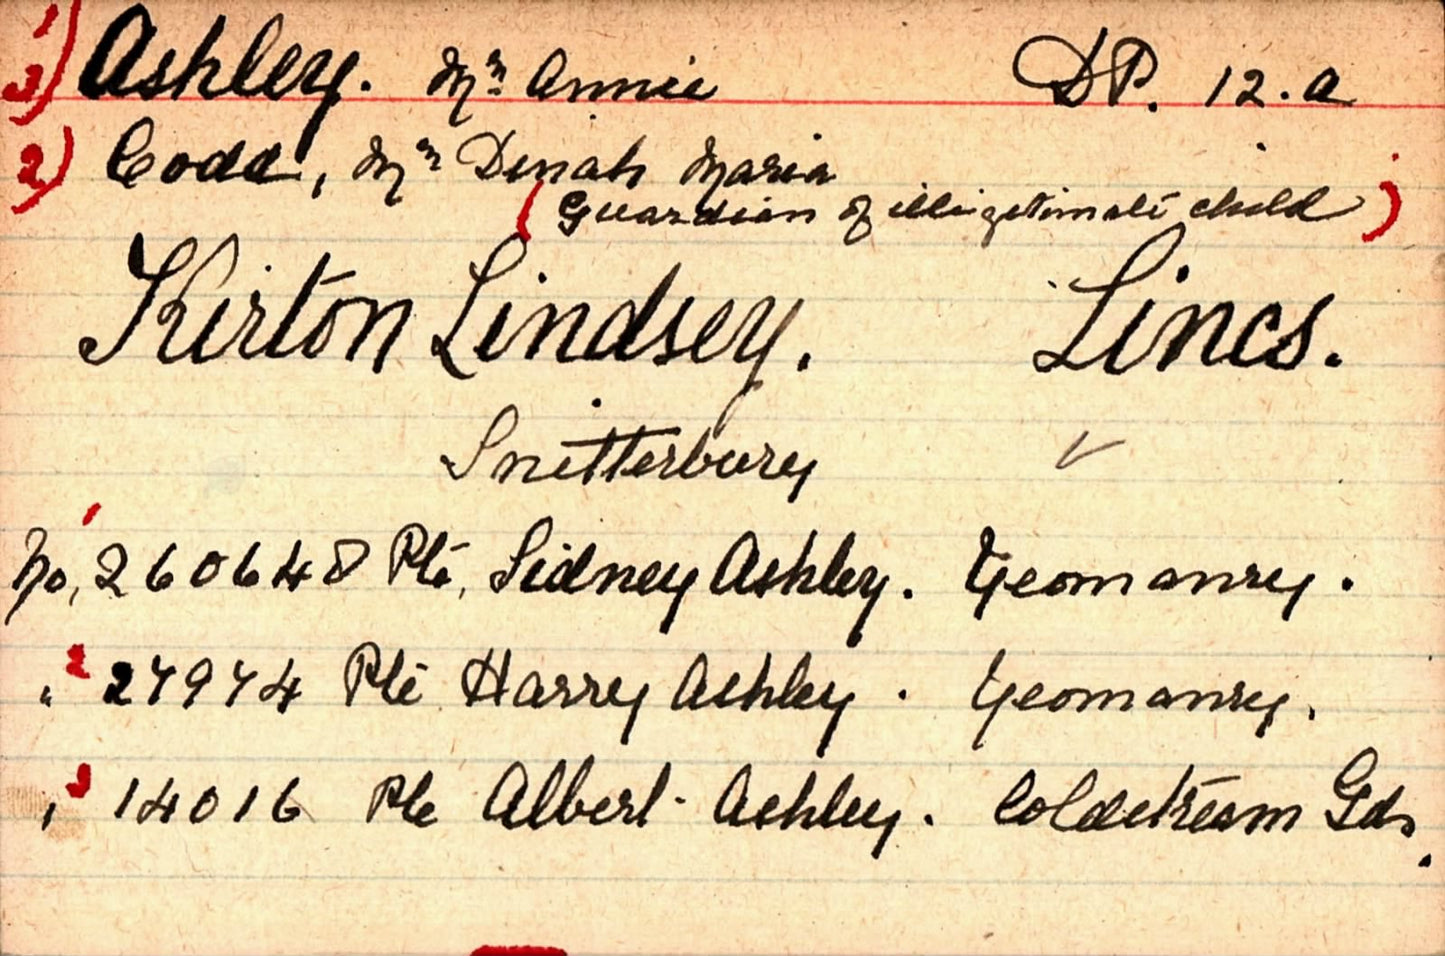 1) 3) Ashley. Mrs Annie D.P. 12.a
2) Codd, Mrs Dinah Maria
(Guardian of illigetimate child)
Kirton Lindsey. Lincs.
Snitterbury ✓
No, 1 260648 Pte, Sidney Ashley. Yeomanry.
" 2 27974 Pte Harry Ashley. Yeomanry.
" 3 14016 Pte Albert Ashley. Coldstream Gds.